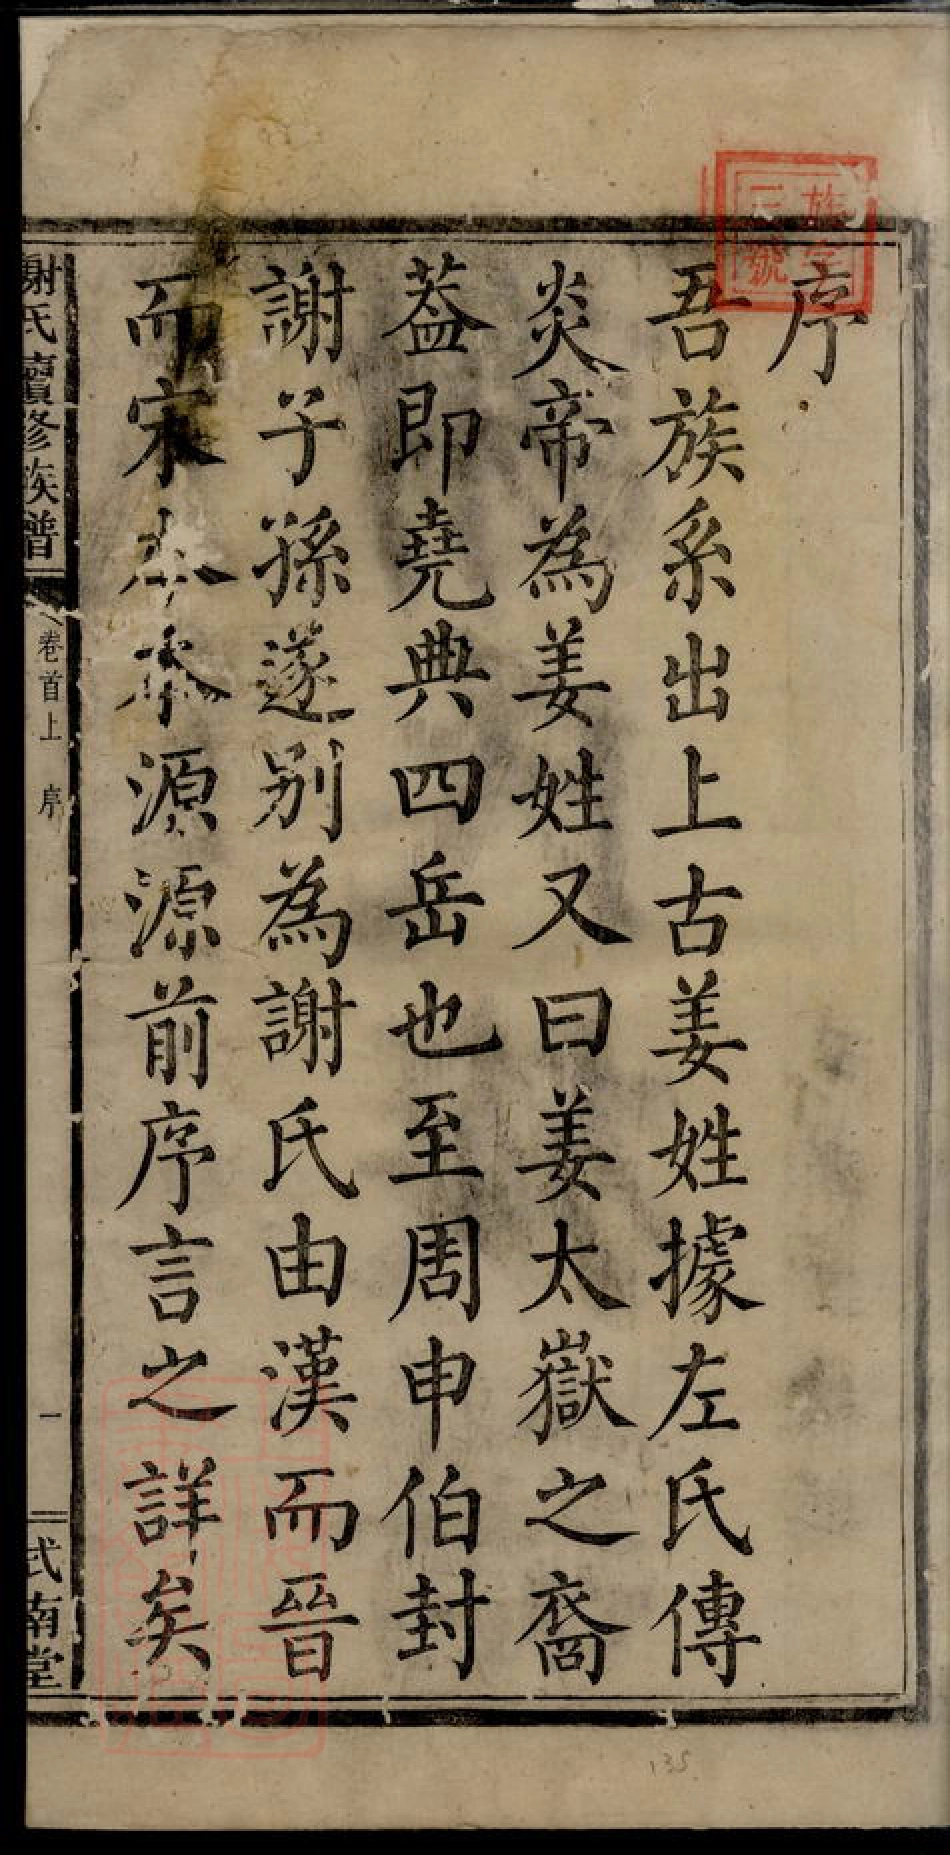 序
吾族系出上古姜姓據左氏傳
炎帝為姜姓又曰姜太嶽之裔
葢即堯典四岳也至周申伯封
謝子孫遂别為謝氏由漢而晉
而宋本本源源前序言之詳矣
謝氏續修族譜
卷首上 序
一
式南堂
族字
三號
135